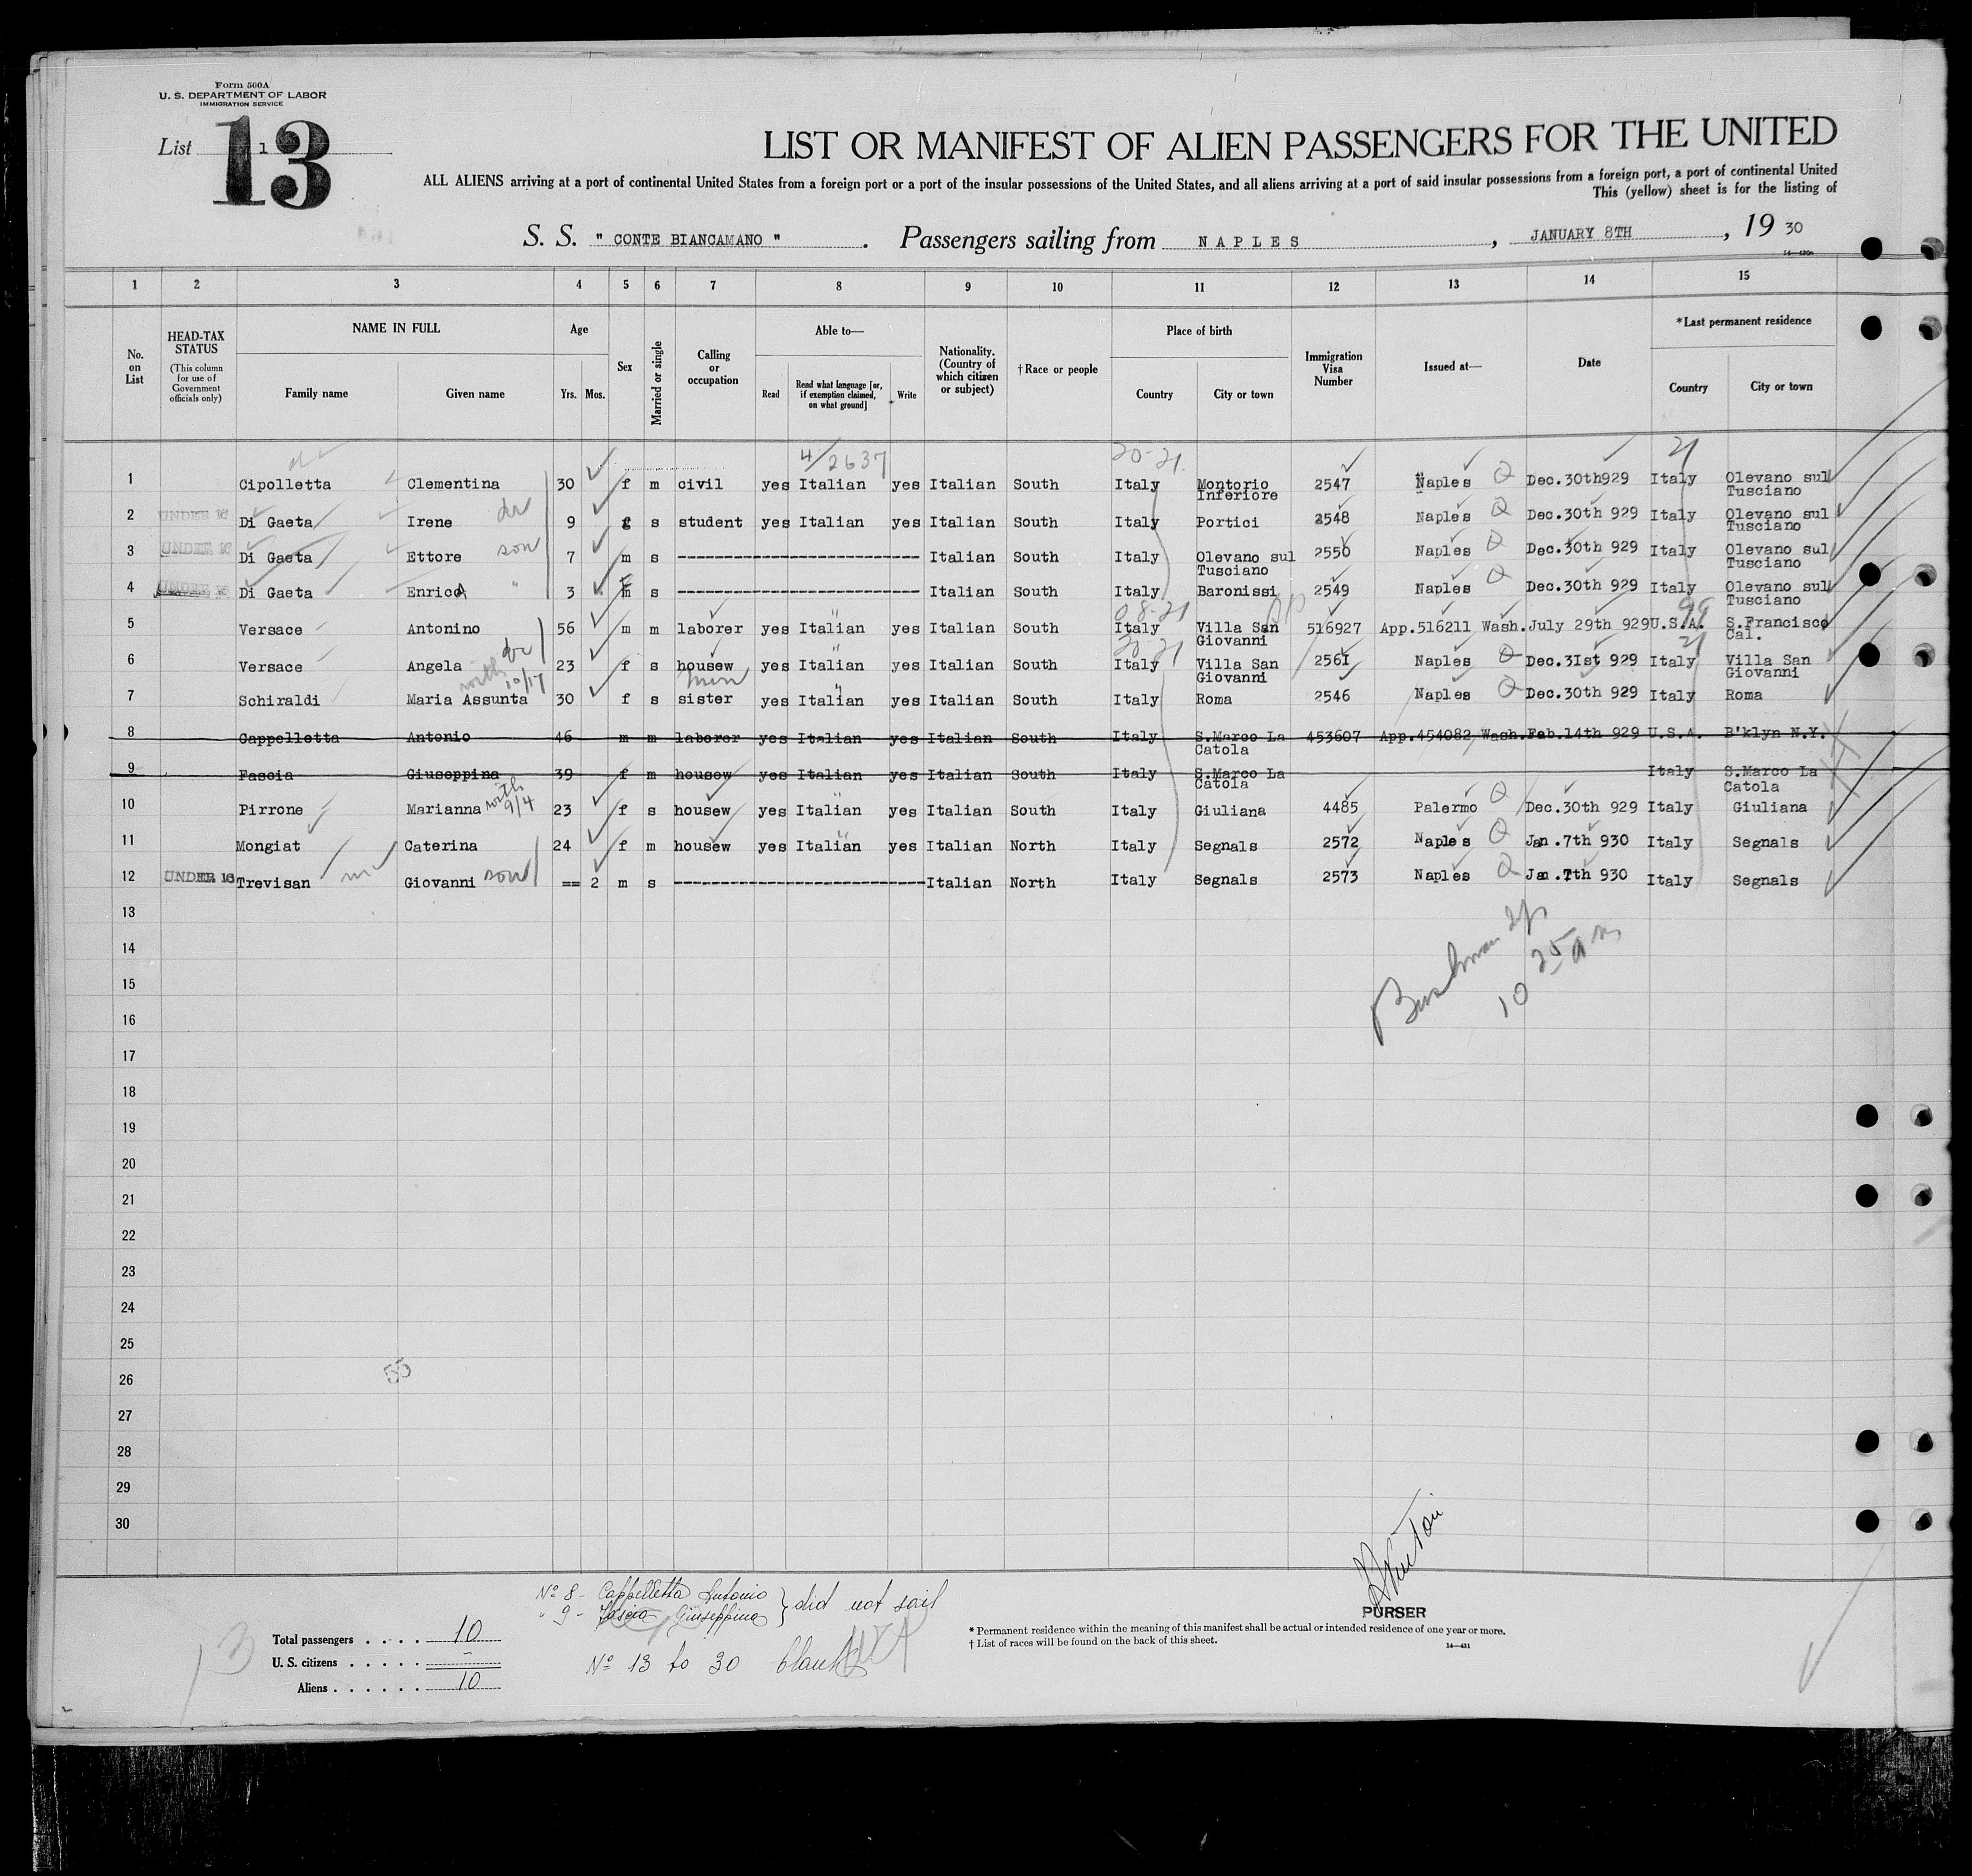 Form 500A
U. S. DEPARTMENT OF LABOR
IMMIGRATION SERVICE
List 1
13
LIST OR MANIFEST OF ALIEN PASSENGERS FOR THE UNITED
ALL ALIENS arriving at a port of continental United States from a foreign port or a port of the insular possessions of the United States, and all aliens arriving at a port of said insular possessions from a foreign port, a port of continental United
This (yellow) sheet is for the listing of
S. S. " CONTE BIANCAMANO " . Passengers sailing from NAPLES , JANUARY 8TH , 19 30
1 2 3 4 5 6 7 8 9 10 11 12 13 14 15
No. on List
HEAD-TAX STATUS (This column for use of Government officials only)
NAME IN FULL Family name Given name
Age Yrs. Mos.
Sex
Married or single
Calling or occupation
Able to— Read Read what language [or, if exemption claimed, on what ground] Write
Nationality. (Country of which citizen or subject)
† Race or people
Place of birth Country City or town
Immigration Visa Number
Issued at—
Date
*Last permanent residence Country City or town
4/2637 20-21 21
1 Cipolletta Clementina 30 f m civil yes Italian yes Italian South Italy Montorio Inferiore 2547 Naples Dec.30th929 Italy Olevano sul Tusciano
2 UNDER 16 Di Gaeta Irene 9 f s student yes Italian yes Italian South Italy Portici 2548 Naples Dec.30th 929 Italy Olevano sul Tusciano
3 UNDER 16 Di Gaeta Ettore son 7 m s Italian South Italy Olevano sul Tusciano 2550 Naples Dec.30th 929 Italy Olevano sul Tusciano
4 UNDER 16 Di Gaeta Enrica " 3 m F s Italian South Italy Baronissi 2549 Naples Dec.30th 929 Italy Olevano sul Tusciano
08-21 99
5 Versace Antonino 56 m m laborer yes Italian yes Italian South Italy Villa San Giovanni 516927 App.516211 Wash. July 29th 929 U.S.A. S.Francisco Cal.
20-21 21
6 Versace Angela 23 f s housew yes Italian yes Italian South Italy Villa San Giovanni 2561 Naples Dec.31st 929 Italy Villa San Giovanni
with 10/17
7 Schiraldi Maria Assunta 30 f s sister yes Italian yes Italian South Italy Roma 2546 Naples Dec.30th 929 Italy Roma
8 Cappelletta Antonio 46 m m laborer yes Italian yes Italian South Italy S.Marco La Catola 453607 App.454082 Wash. Feb.14th 929 U.S.A. B'klyn N.Y.
9 Fascia Giuseppina 39 f m housew yes Italian yes Italian South Italy S.Marco La Catola Italy S.Marco La Catola
10 Pirrone Marianna with 9/4 23 f s housew yes Italian yes Italian South Italy Giuliana 4485 Palermo Dec.30th 929 Italy Giuliana
11 Mongiat Caterina 24 f m housew yes Italian yes Italian North Italy Segnals 2572 Naples Jan.7th 930 Italy Segnals
12 UNDER 16 Trevisan Giovanni son == 2 m s Italian North Italy Segnals 2573 Naples Jan.7th 930 Italy Segnals
13
14
15
16
17
18
19
20
21
22
23
24
25
26
27
28
29
30
10 25 am
55
Nº 8 - Cappelletta Antonio
" 9 - Fascia Giuseppina } did not sail
Nº 13 to 30 blank
PURSER
Total passengers . . . . 10
U. S. citizens . . . . . -
Aliens . . . . . . 10
13
* Permanent residence within the meaning of this manifest shall be actual or intended residence of one year or more.
† List of races will be found on the back of this sheet.
14—431